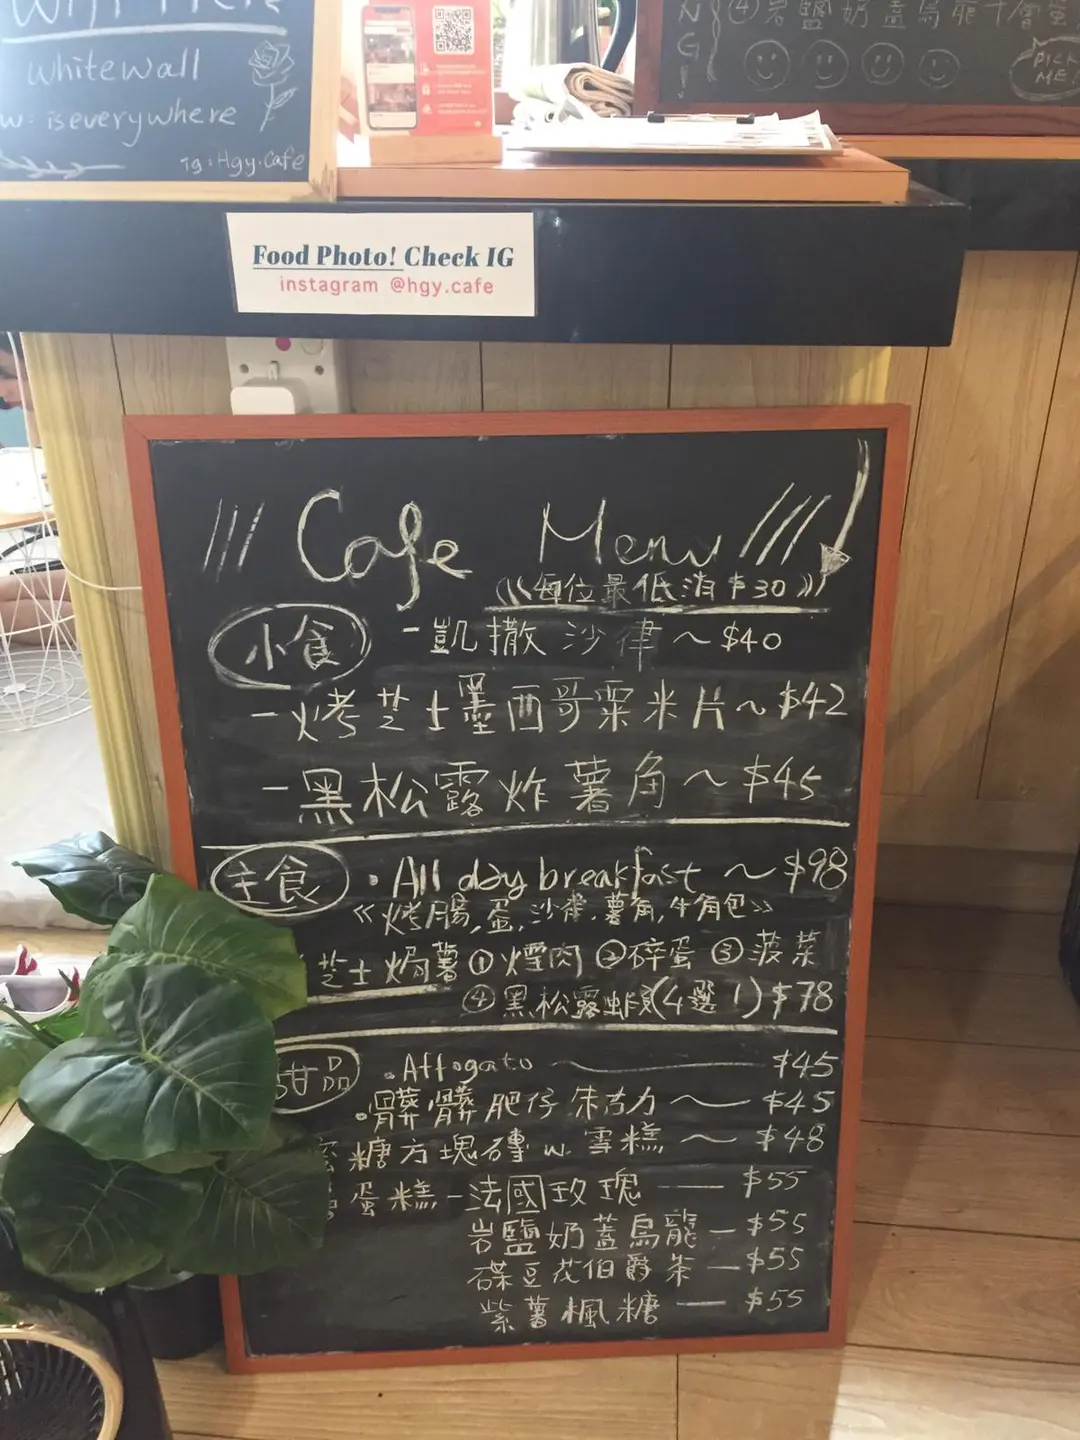 whitewall
w: iseverywhere
Ig: Hgy.Cafe
PICK
ME!
Food Photo! Check IG
instagram @hgy.cafe
Cafe Menu
每位最低消 $30
小食
- 凱撒沙律 ~ $40
- 烤芝士墨西哥粟米片 ~ $42
- 黑松露炸薯角 ~ $45
主食 • All day breakfast ~ $98
《烤腸, 蛋, 沙律, 薯角, 牛角包》
芝士焗薯 ① 煙肉 ② 碎蛋 ③ 菠菜
④ 黑松露蚧(4選1) $78
甜品 • Affogato — $45
• 髒髒肥仔朱古力 — $45
糖方塊磚 w. 雪糕 ~ $48
蛋糕 - 法國玫瑰 — $55
岩鹽奶蓋烏龍 — $55
碟豆花伯爵茶 — $55
紫薯楓糖 — $55